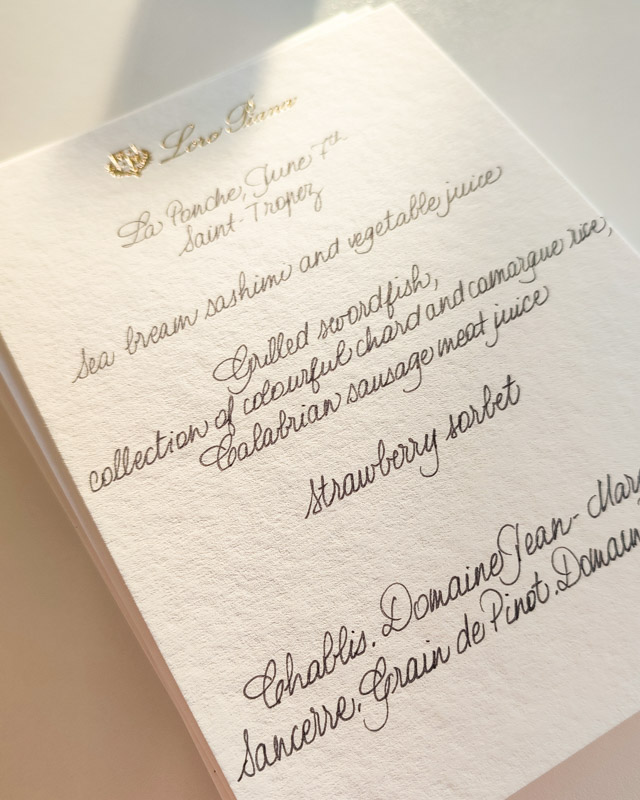 Loro Piana
La Ponche, June 7th
Saint-Tropez
Sea bream sashimi and vegetable juice
Grilled swordfish,
collection of colourful chard and camargue rice,
Calabrian sausage meat juice
Strawberry sorbet
Chablis. Domaine Jean-Mar
Sancerre. Grain de Pinot. Domain